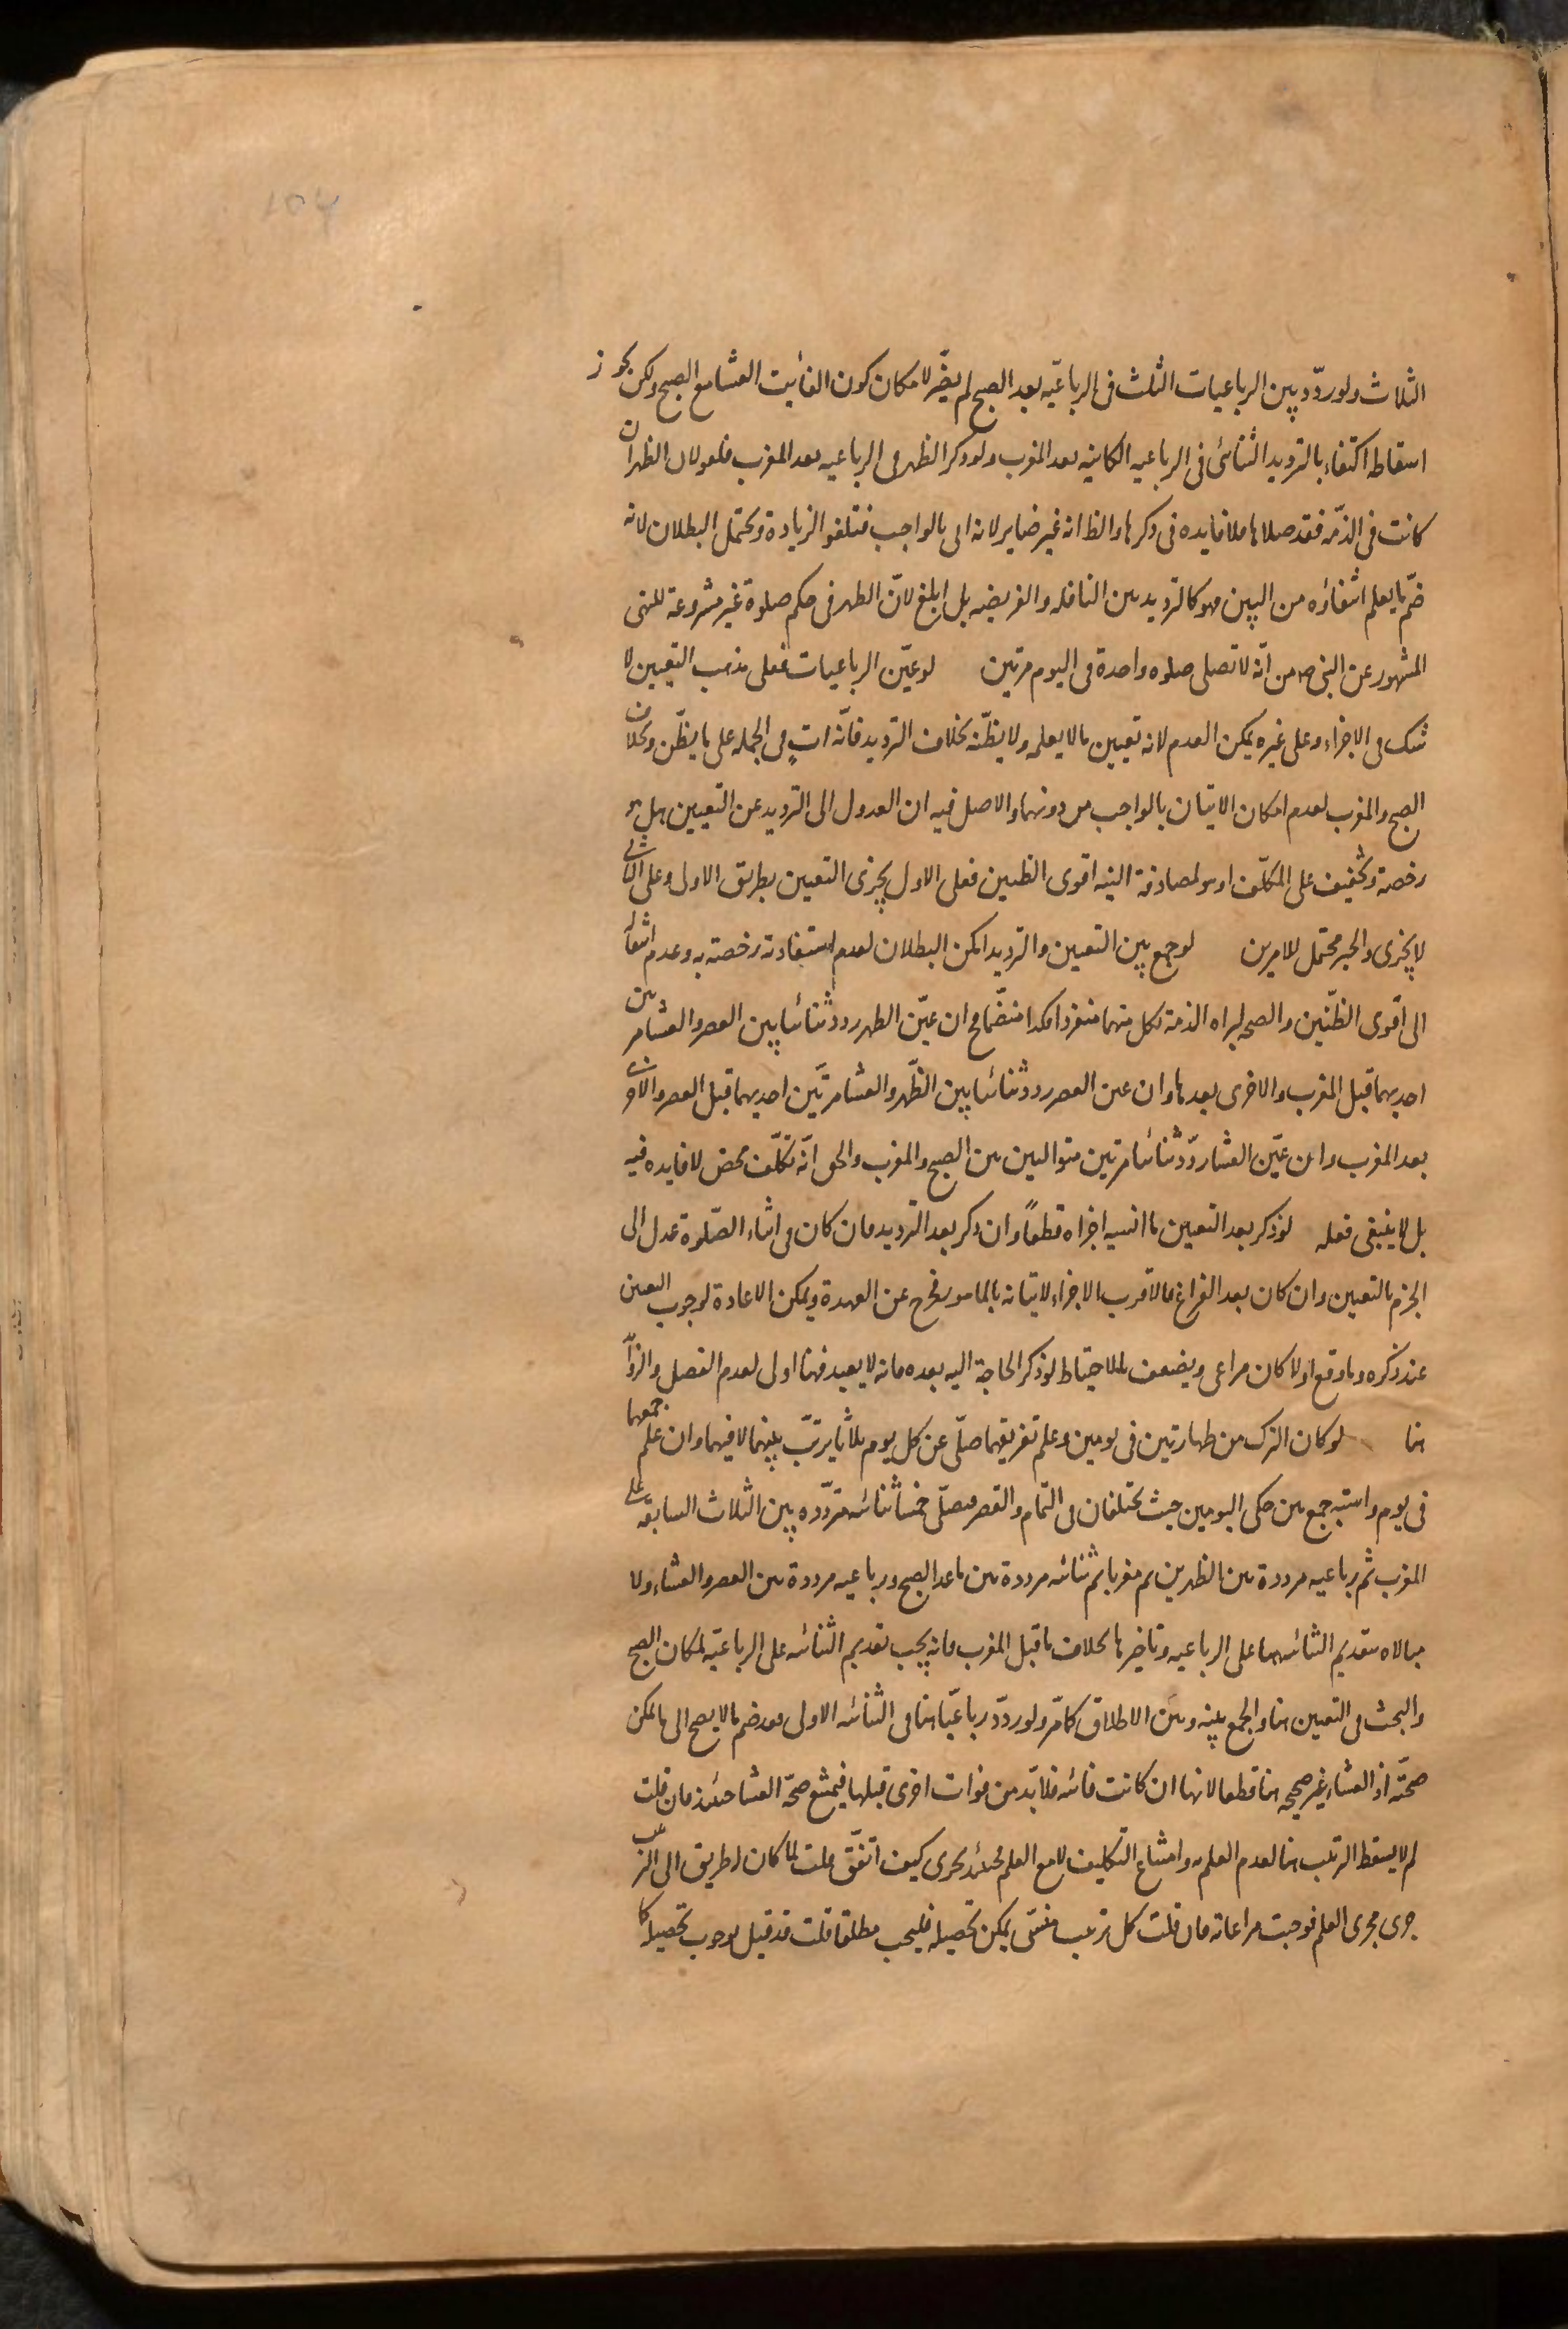 الثلاث ولو ردّد بين الرباعيات الثلث فى الرباعيّه بعد الصبح لم يضرّ لامكان كون الفائت العشا مع الصبح ولكن يجوز
اسقاطه اكتفاء بالترديد الثنائى فى الرباعيه الكاينه بعد المغرب ولو ذكر الظهر فى الرباعيه بعد المغرب فلغو لان الظهر ان
كانت فى الذمّه فقد صلاها فلا فايده فى ذكرها والظ انه غير ضاير لانه اتى بالواجب فتلغو الزيادة ويحتمل البطلان لانه
ضمّ ما يعلم انتفاؤه من البين فهو كالترديد بين النافله والفريضه بل ابلغ لانّ الظهر فى حكم صلوة غير مشروعة للنهى
المشهور عن النبى ص من انّه لا تصلى صلوه واحدة فى اليوم مرتين لو عيّن الرباعيات فعلى مذهب التعيين لا
شك فى الاجزاء وعلى غيره يمكن العدم لانه تعيين ما لا يعلمه ولا يظنّه بخلاف الترديد فانّه اتٍ فى الجمله على ما يظنّ وبخلاف
الصبح والمغرب لعدم امكان الاتيان بالواجب من دونهما والاصل فيه ان العدول الى الترديد عن التعيين هل هو
رخصة وتخفيف على المكلّف او هو لمصادفة النيه اقوى الظنين فعلى الاول يجزى التعيين بطريق الاولى وعلى الثانى
لا يجزى والخبر محتمل للامرين لو جمع بين التعيين والترديد امكن البطلان لعدم استفادته رخصته به وعدم انتقاله
الى اقوى الظنّين والصحه لبراه الذمة بكل منهما منفردا فكذا منضّما فح ان عيّن الظهر ردد ثنائيا بين العصر والعشا مرتين
احديهما قبل المغرب والاخرى بعدها وان عين العصر ردد ثنائيا بين الظّهر والعشا مرتّين احديهما قبل العصر والاخرى
بعد المغرب وان عيّن العشا ردّد ثنائيا مرتين متواليين بين الصبح والمغرب والحق انّه تكلّف محض لا فايده فيه
بل لا ينبغى فعله لو ذكر بعد التعيين ما انسيه اجزاه قطعاً وان ذكر بعد الترديد فان كان فى اثناء الصّلوة عدل الى
الجزم بالتعيين وان كان بعد الفراغ فالاقرب الاجزاء لاتيانه بالمامور فخرج عن العهدة ويمكن الاعادة لوجوب التعيين
عند ذكره وما وقع اولا كان مراعى ويضعف بالاحتياط لو ذكر الحاجة اليه بعده فانه لا يعيد فهنا اولى لعدم الفصل والزوائد
هنا لو كان الترك من طهارتين فى يومين وعلم تفريقهما صلّى عن كل يوم ثلاثا يرتّب بينهما لا فيهما وان علم جمعهما
فى يوم واشتبه جمع بين حكمى اليومين حيث يختلفان فى التّمام والقصر فيصلّى خمسا ثنائيه مردّده بين الثلاث السابقه على
المغرب ثم رباعيه مرددة بين الظهرين ثم مغربا ثم ثنائيه مرددة بين ما عدا الصبح ورباعيه مرددة بين العصر والعشاء ولا
مبالاه بتقديم الثنائيه هنا على الرباعيه وتاخيرها بخلاف ما قبل المغرب فانه يجب تقديم الثنائيه على الرباعيّه لمكان الصبح
والبحث فى التعيين هنا والجمع بينه وبين الاطلاق كما مرّ ولو ردّد رباعيّا هنا فى الثنائيه الاولى فقد ضم ما لا يصح الى ما يمكن
صحّته اذ العشاء غير صحيحه هنا قطعا لانها ان كانت فائته فلا بدّ من فوات اخرى قبلها فيمتنع صحّة العشا حينئذ فان قلت
لم لا يسقط الترتيب هنا لعدم العلم به وامتناع التكليف لا مع العلم فحينئذ يجرى كيف اتفق قلت لما كان له طريق الى الترتيب
جرى مجرى العلم فوجبت مراعاته فان قلت كل ترتيب منسى يمكن تحصيله فليجب مطلقا قلت قد قيل بوجوب تحصيله كما